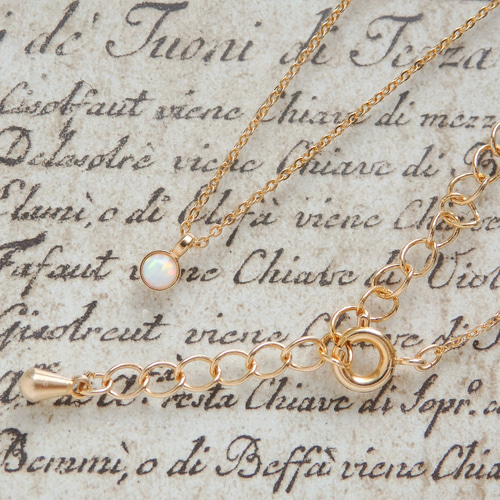 i de' Tuoni di Terza
Gisolfaut viene Chiave di mezz
Delasolrè viene Chiave di B
Elamì, o di Elafà viene Chiave
Fafaut viene Chiave di Viol
Gisolreut viene Chiave
Ar resta Chiave di Sopr.º
Bemmì, o di Beffà viene Chiave